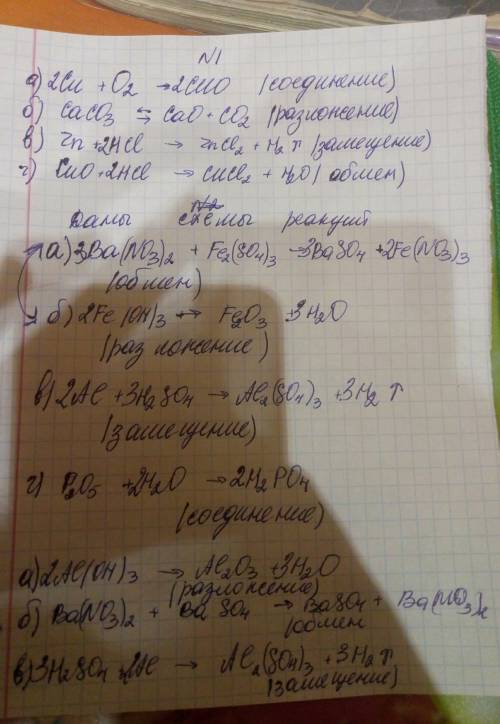 N1
а) 2Cu + O2 → 2CuO (соединение)
б) CaCO3 ⇆ CaO + CO2 (разложение)
в) Zn + 2HCl → ZnCl2 + H2↑ (замещение)
г) CuO + 2HCl → CuCl2 + H2O (обмен)
N2
Даны схемы реакций
1 а) 3Ba(NO3)2 + Fe2(SO4)3 → 3BaSO4 + 2Fe(NO3)3
(обмен)
б) 2Fe(OH)3 → Fe2O3 + 3H2O
(разложение)
в) 2Al + 3H2SO4 → Al2(SO4)3 + 3H2↑
(замещение)
г) P2O5 + 2H2O → 2H2PO4
(соединение)
а) 2Al(OH)3 → Al2O3 + 3H2O
(разложение)
б) Ba(NO3)2 + BaSO4 → BaSO4 + Ba(NO3)2
(обмен
в) 3H2SO4 + 2Al → Al2(SO4)3 + 3H2↑
(замещение)